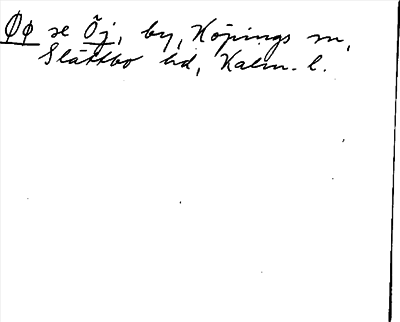 Øø se Öj, by, Köpings sn,
Slättbo hd, Kalm. l.